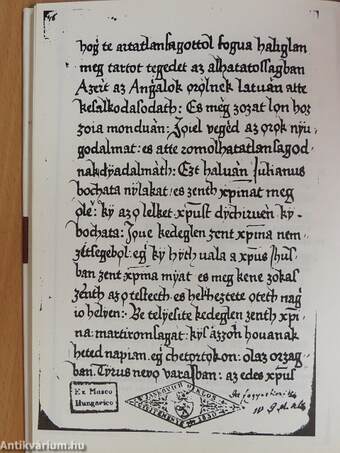 hog te artatlansagottol fogua haliglan
meg tartot tegedet az alhatatossagban
Azert az Angalok ozolnek latuan atte
kesalkodasodath: Es meg zozat lon hoz
zoia monduan: Jouel veged az ozok nyu
godalmat: es atte zomolhatlansagod-
nak dyadalmath: Ezt haluan Julianus
bochata nylakat: es zenth xpinat meg
ole: ky az o lelket xpust dychizuen ky-
bochata: Joue kedeglen zent xpina nem-
zetsegebol: eg ky hyth vala a xpus Jhus-
ban zent xpina myat es meg kene zokal
zenth az o testeeth es helheztett oteth nag
io helyen: Be telyesite kedeglen zenth xpi-
na: martiromsagat: kys azzon houanak
heted napian. eg chetortokon: olaz orzag-
ban. Tyrus nevo varasban: az edes xpus
Ex Museo
Hungarico
Antikvarium.hu